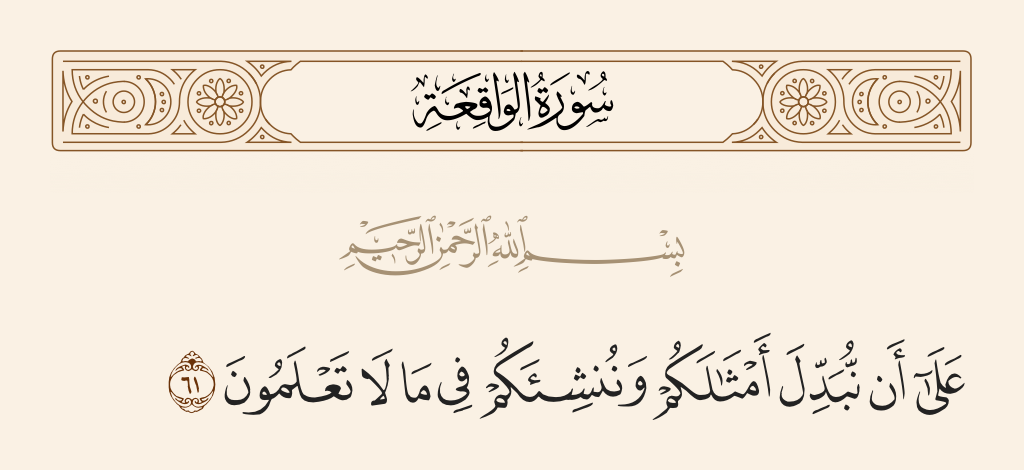 سُورَةُ الوَاقِعَةِ
بِسْمِ ٱللَّهِ ٱلرَّحْمَٰنِ ٱلرَّحِيمِ
عَلَىٰٓ أَن نُّبَدِّلَ أَمْثَٰلَكُمْ وَنُنشِئَكُمْ فِى مَا لَا تَعْلَمُونَ ٦١